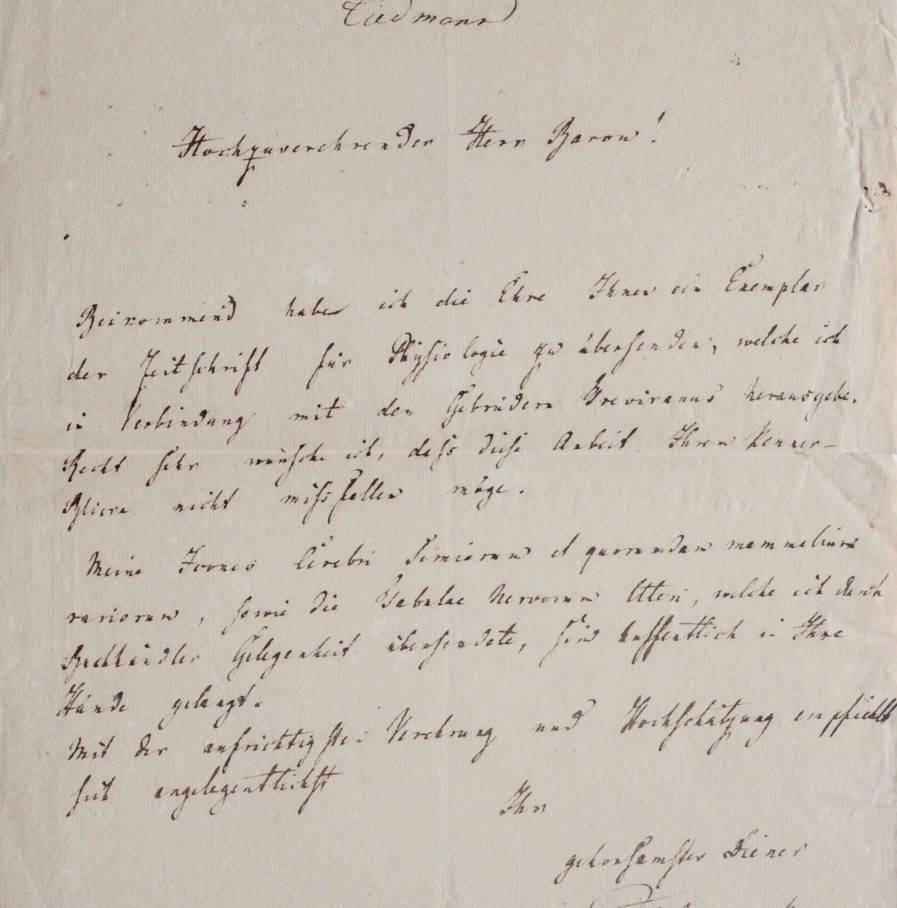 Tiedmann
Hochzuverehrender Herr Baron!
Beikommend habe ich die Ehre Ihnen ein Exemplar
der Zeitschrift für Physiologie zu übersenden, welche ich
in Verbindung mit den Gebrüdern Treviranus herausgebe.
Recht sehr wünsche ich, dass diese Arbeit Ihrem Kenner-
Blicke nicht missfallen möge.
Meine Icones Cerebri Simiarum et quorundam mammalium
rariorum, sowie die Tabulae Nervorum Uteri, welche ich durch
Buchhändler Gelegenheit übersendete, sind hoffentlich in Ihre
Hände gelangt.
Mit der aufrichtigsten Verehrung und Hochschätzung empfiehlt
sich angelegentlichst
Ihr
gehorsamster Diener